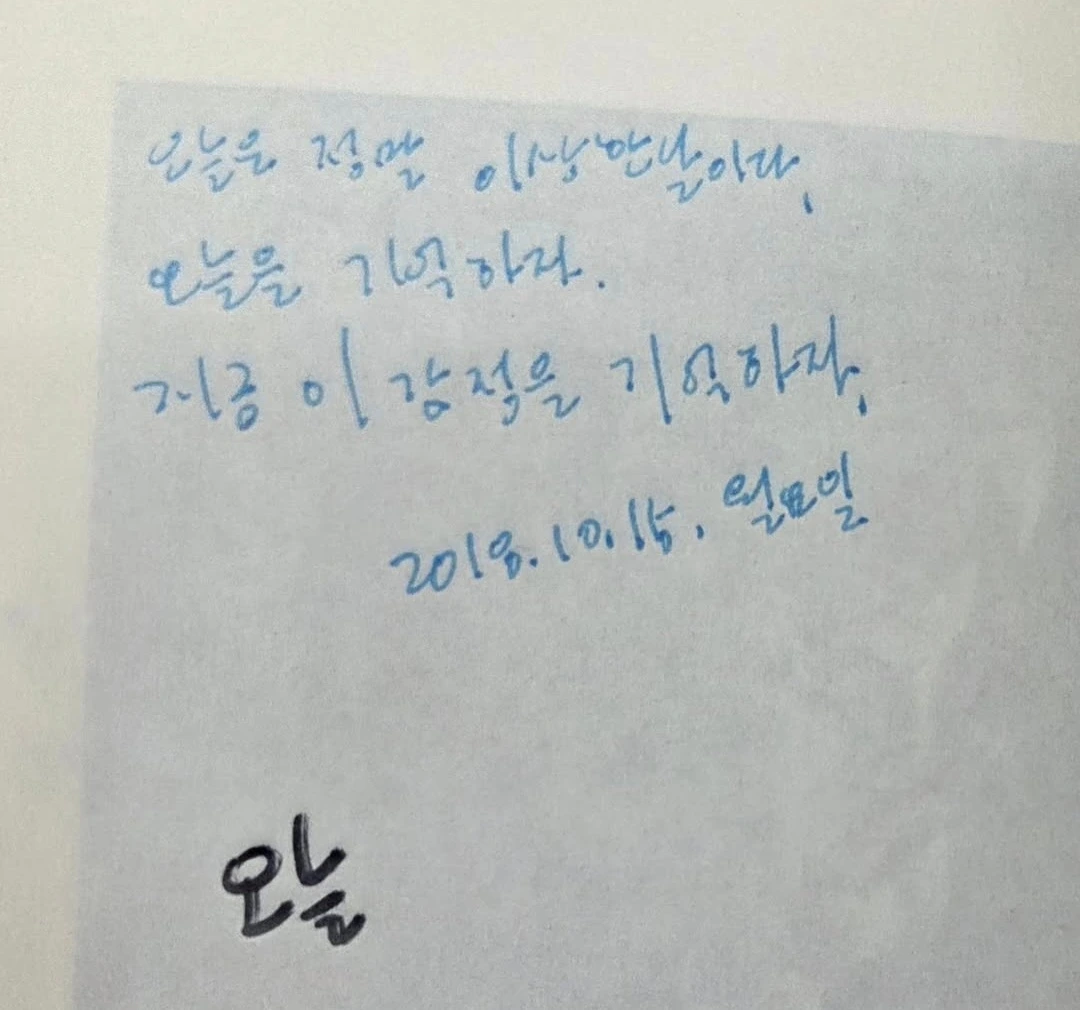 오늘은 정말 이상한 날이다.
오늘을 기억하자.
지금 이 감정을 기억하자.
2018.10.15. 월요일
오늘